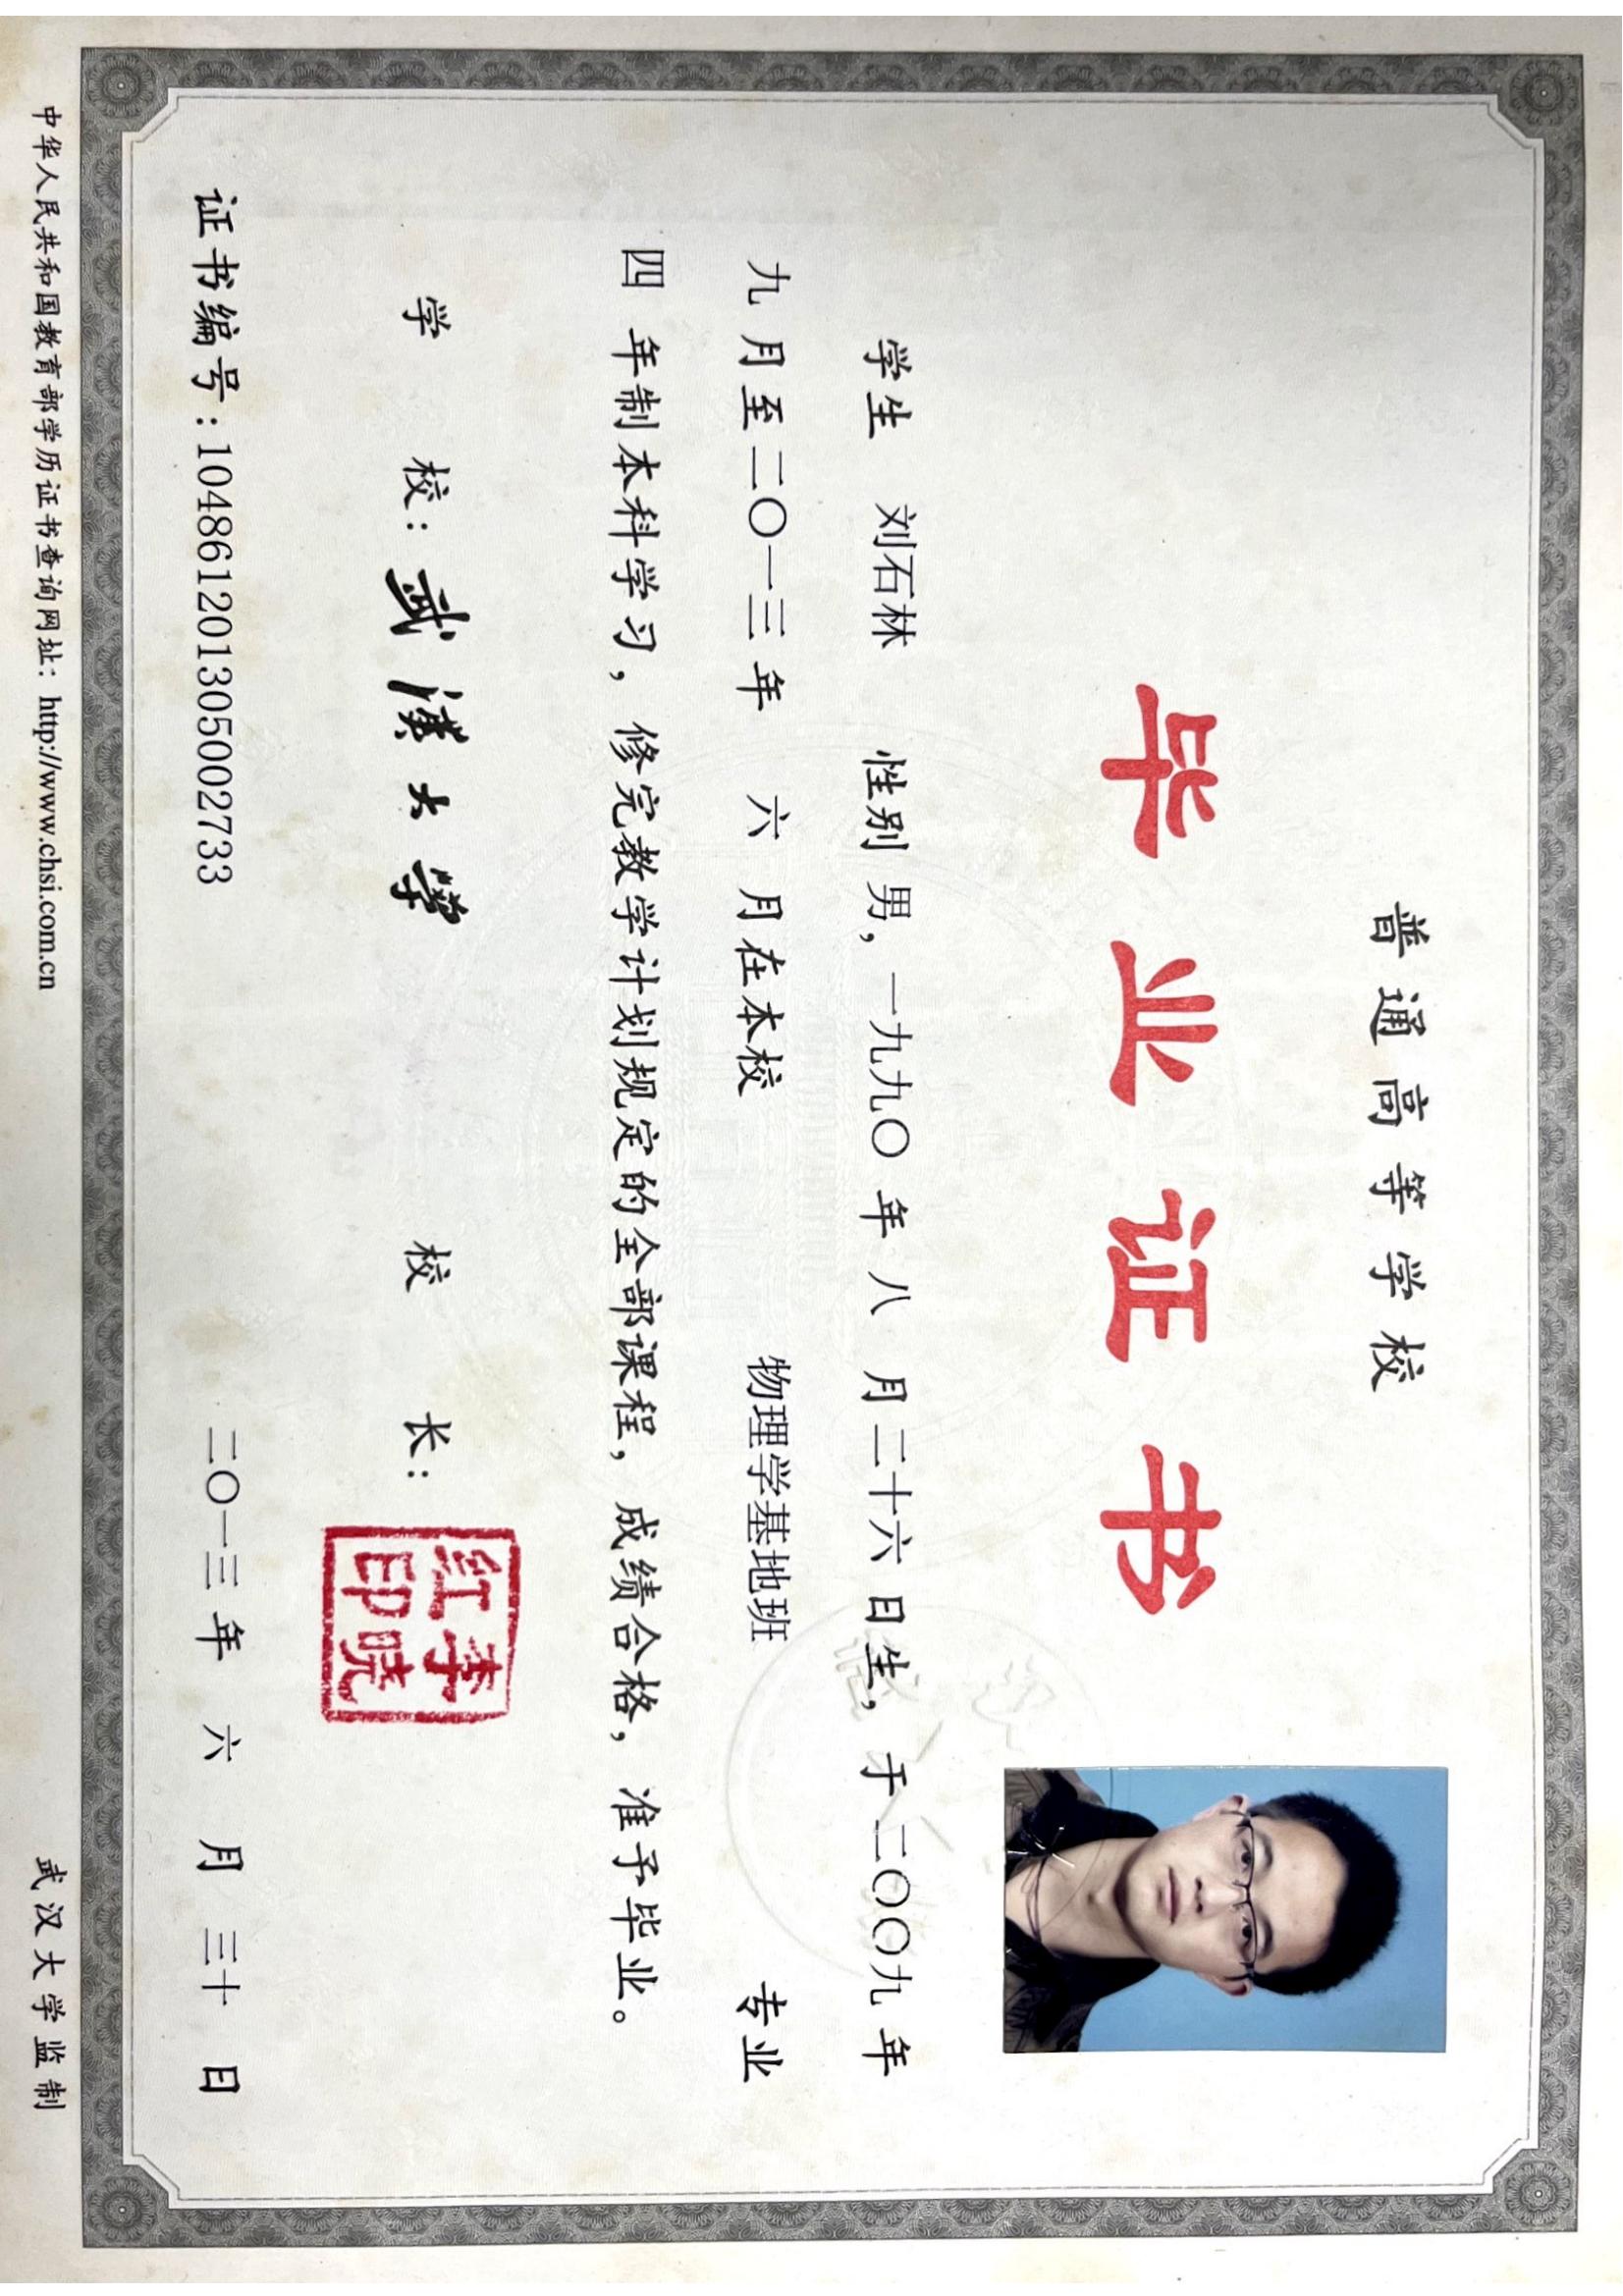 普通高等学校
毕业证书
学生 刘石林 性别 男，一九九〇 年 八 月 二十六 日生，于 二〇〇九 年
九 月至 二〇一三 年 六 月在本校 物理学基地班 专业
四 年制本科学习，修完教学计划规定的全部课程，成绩合格，准予毕业。
学 校：武漢大學 校 长：
李晓红印
证书编号：104861201305002733 二〇一三 年 六 月 三十 日
中华人民共和国教育部学历证书查询网址：http://www.chsi.com.cn 武汉大学监制